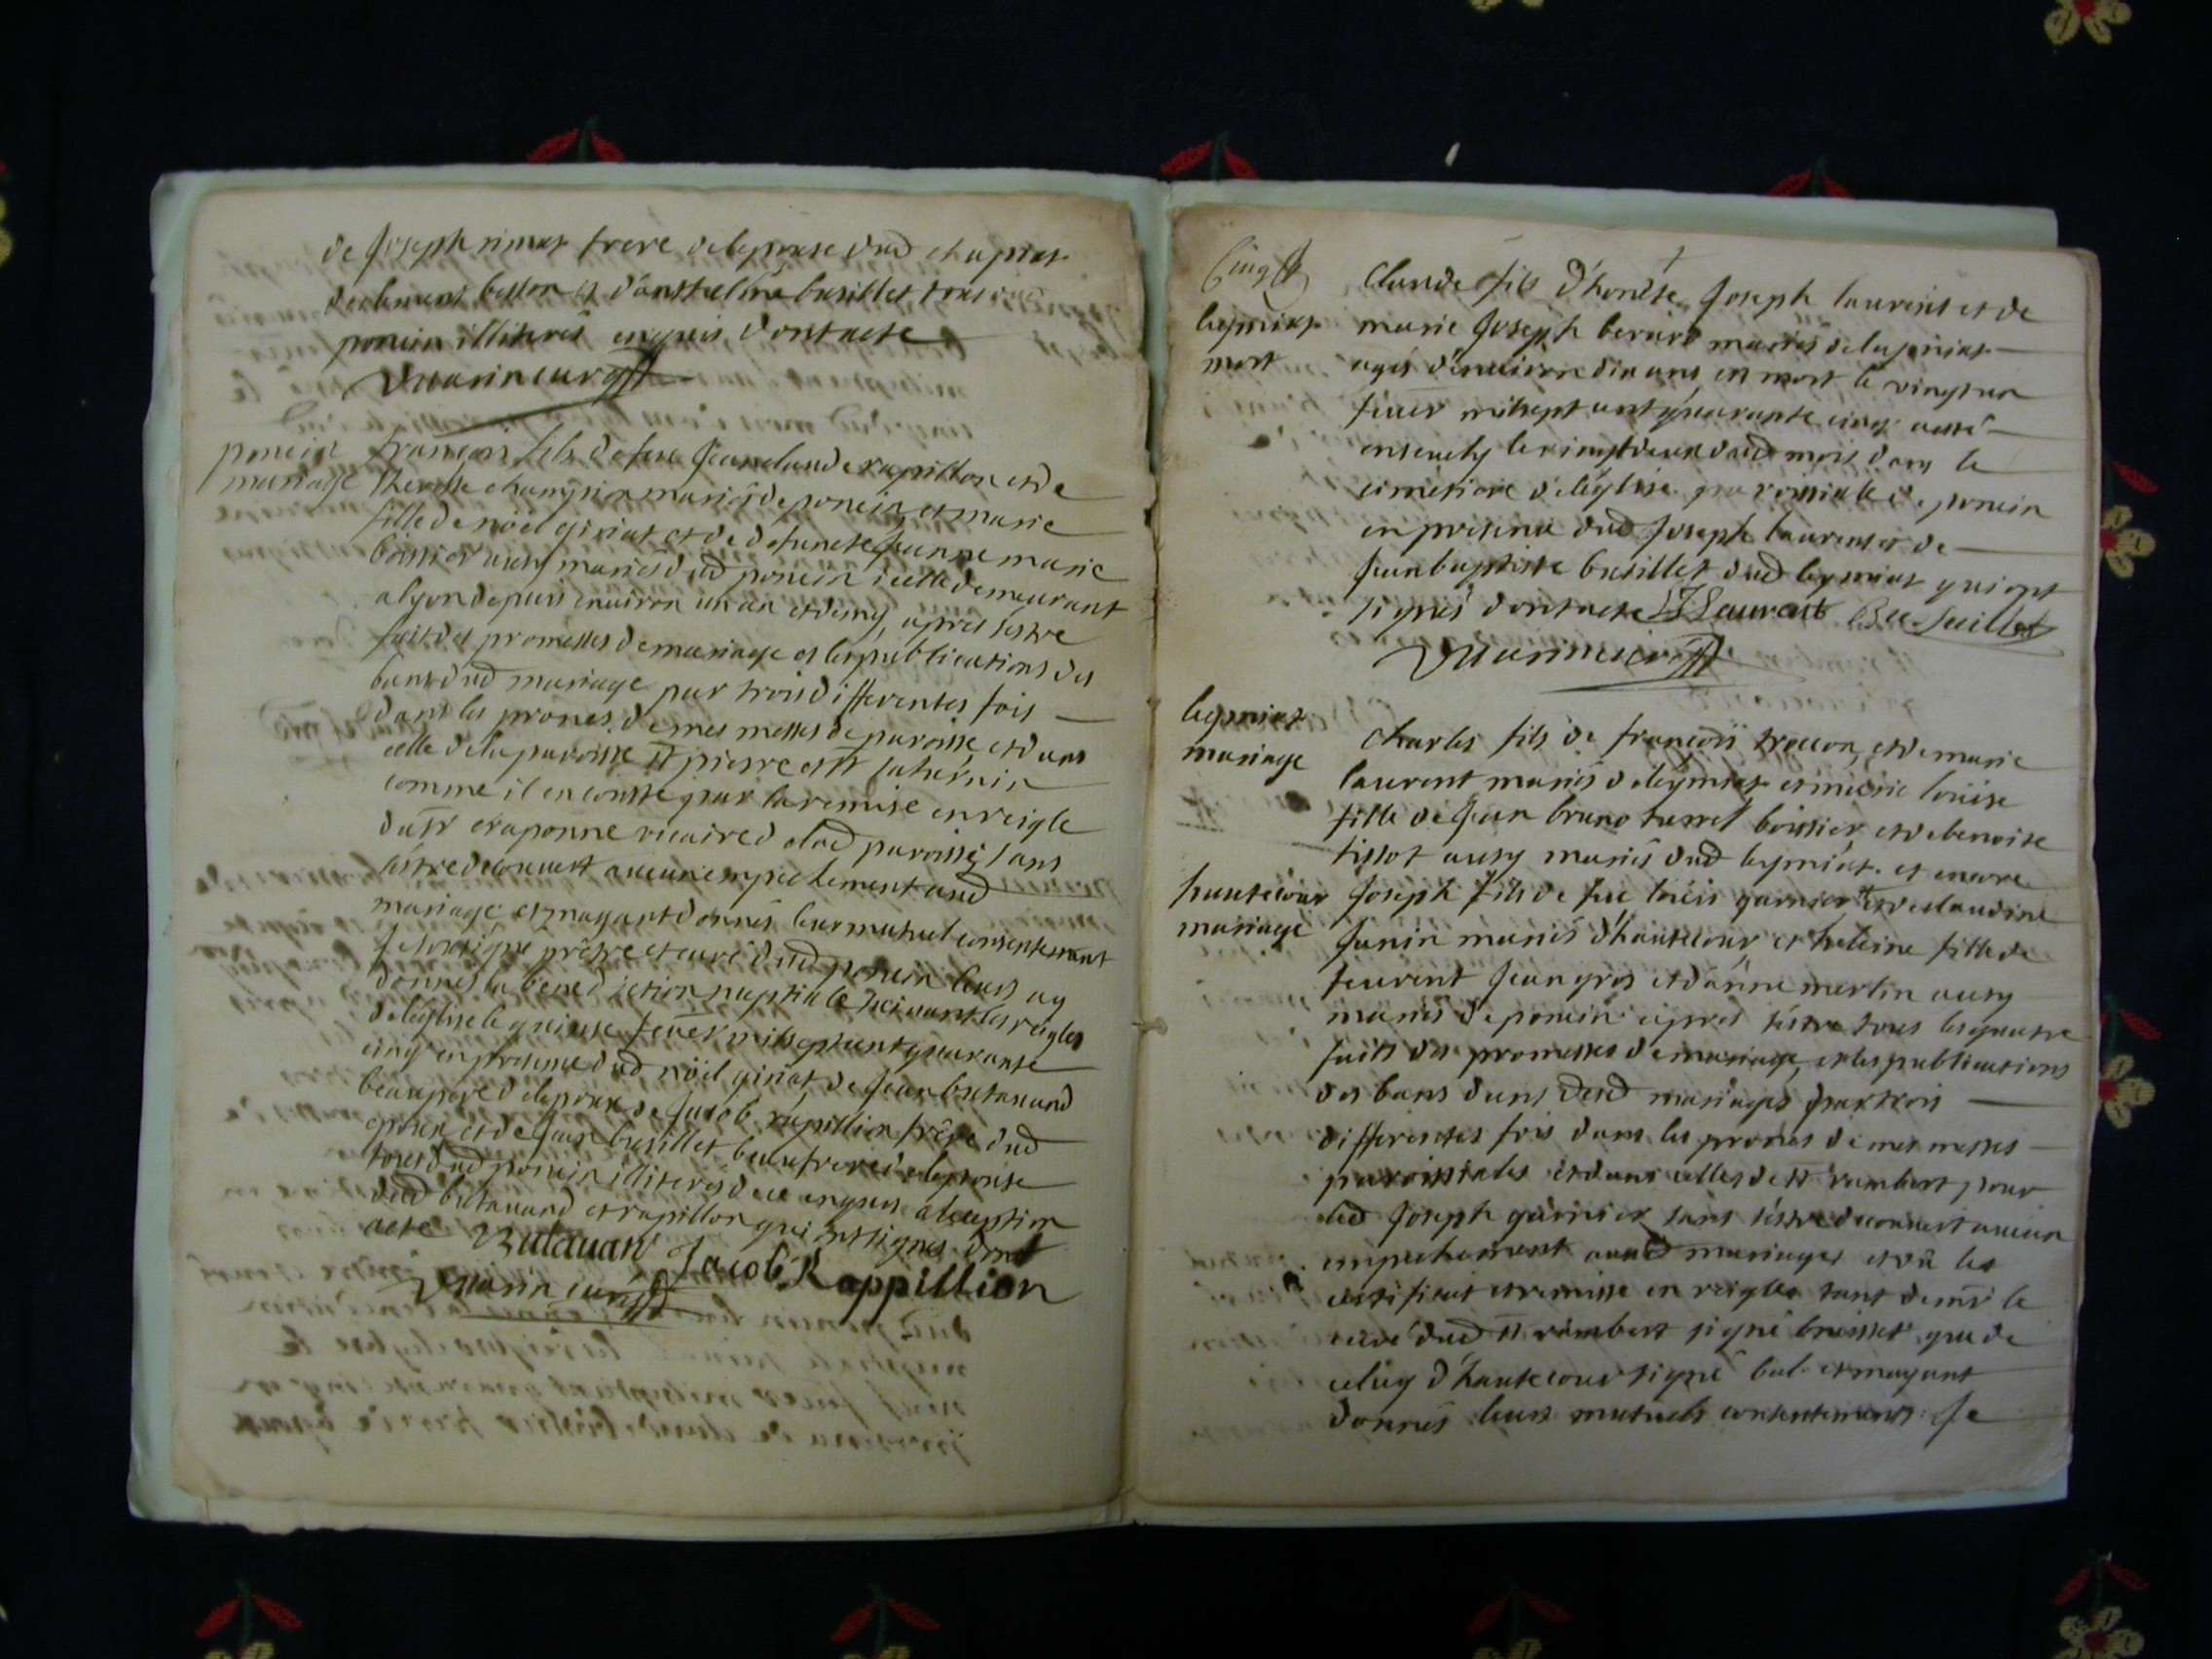 de Joseph rimat frere delepouse dud et apriat
declemens besson et d'anthelme busillet tous
poncin illiterés enquis dont acte
Vuarin curé
poncin
mariage
françois fils de feu Jeanclaude rapillion et de
therese champion mariés de poncin, et marie
fille de nöel giriat et de defuncte Jeanne marie
boissier aussy mariés dud poncin icelle demeurant
a lyon depuis environ un an et demy, apres s'estre
fait des promesses de mariage et les publications des
bans dud mariage par trois differentes fois —
dans les prones de mes messes de paroisse, et dans
celle de la paroisse st pierre et st saturnin
comme il en conste par la remise en reigle
du sr craponne vicaire de lad paroisse, sans
s'estre decouvert aucun empechement aud
mariage et mayant donnés leur mutuel consentement
Je soussigné prêtre et curé dud poncin leurs ay
donnés la benediction nuptiale suivant les reigles
de leglise le quinze feuer mil sept cent quarante
cinq en presence dud nöel giriat de Jean butauand
beaupere de lepoux de Jacob rapillion frere dud
epoux et de Jean busillet beaufrere de lepouse
tous dud poncin illiterés de ce enquis a lexception
dud butauand et rapillon qui ont signes dont
acte Butauan Jacob Rappillion
Vuarin curé
Cinq
leymiat
mort
Claude fils d'honéte Joseph laurent et de
marie Joseph berard mariés de leymiat —
agés d'environ dix ans, est mort le vingt un
feuer mil sept cent quarante cinq et a esté —
ensevely le vingt deux dud mois dans le
cimetiere de leglise paroissiale de poncin
en presence dud Joseph laurent et de —
Jean baptiste busillet dud leymiat qui ont
signés dont acte J Laurent Busillet
Vuarin curé
leymiat
mariage
Charles fils de françois troccon, et de marie
laurent mariés de leymiat et marie loüise
fille de Jean bruno tarrel boissier, et de benoite
tissot aussy mariés dud leymiat. et encore
hautecour
mariage
Joseph fils de feu loüis garnier et de claudine
Janin mariés d'hautecour, et heleine fille de
laurent Jean gros et d'anne merlin aussy
mariés de poncin apres s'estre tous les quatre
faits des promesses de mariage, et les publications
des bans dans desd mariages par trois —
differentes fois dans les prones de mes messes —
paroissiales et dans celles de st rambert pour
led Joseph garnier sans s'estre decouvert aucun
empechement auxd mariages et vu les
certificat et remisse en reigles tant de mr le
curé dud st rambert signé brisset que de
celuy d'hautecour signé bal et mayant
donnés leurs mutuels consentements Je